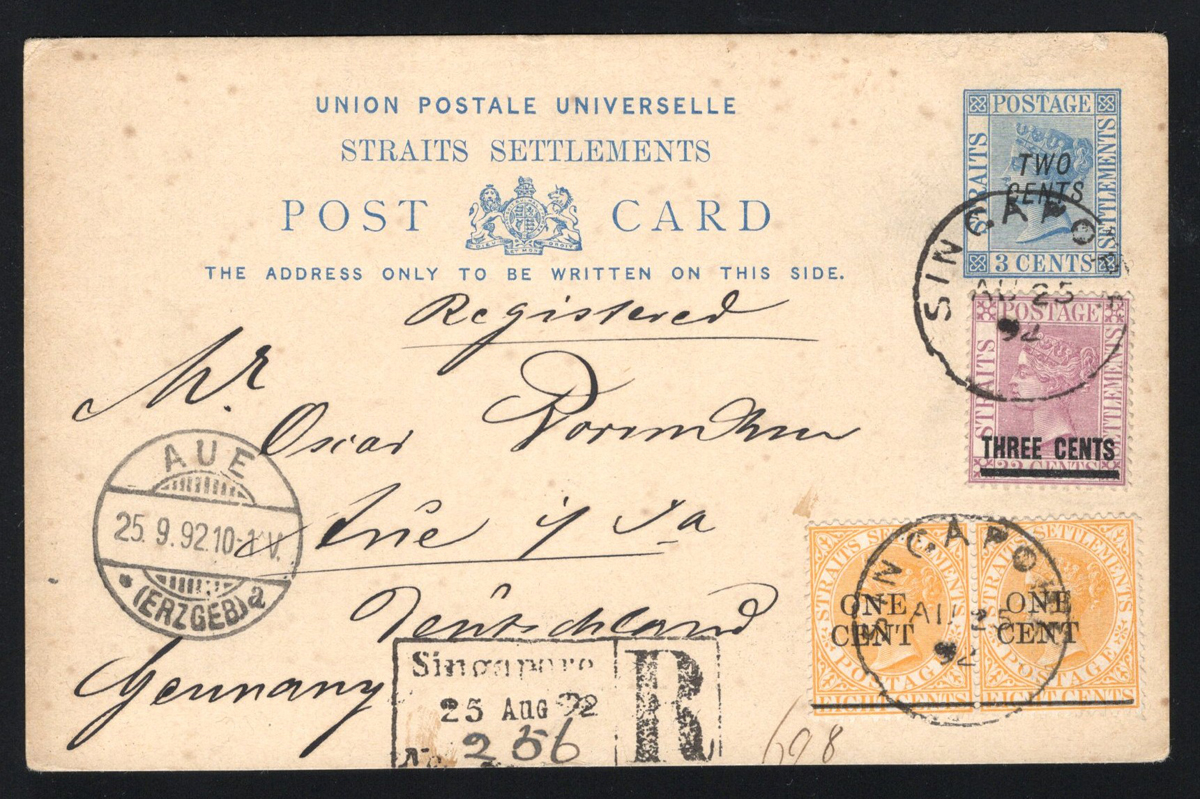 UNION POSTALE UNIVERSELLE
STRAITS SETTLEMENTS
POST CARD
THE ADDRESS ONLY TO BE WRITTEN ON THIS SIDE.
POSTAGE
STRAITS
SETTLEMENTS
TWO
CENTS
3 CENTS
SINGAPORE
AU 25
92
POSTAGE
STRAITS
SETTLEMENTS
THREE CENTS
32 CENTS
Registered
Mr
Oscar
Aue i/Sa
Deutschland
Germany
AUE
25.9.92.10-11V.
* (ERZGEB) a
STRAITS SETTLEMENTS
ONE
CENT
POSTAGE
EIGHT CENTS
STRAITS SETTLEMENTS
ONE
CENT
POSTAGE
EIGHT CENTS
SINGAPORE
AU 25
92
Singapore
25 Aug 92
No. 256
R
698